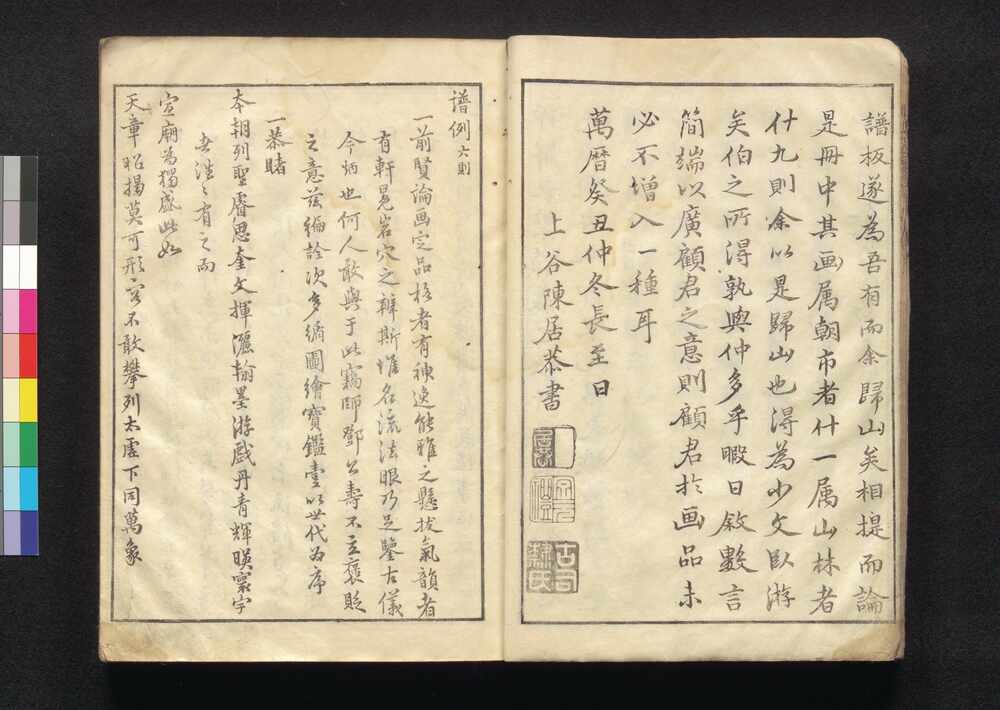 譜板遂為吾有而余歸山矣相提而論
是冊中其画属朝市者什一属山林者
什九則余以是歸山也得為少文臥游
矣伯之所得孰與仲多乎暇日敘數言
簡端以廣顧君之意則顧君於画品未
必不增入一種耳
萬曆癸丑仲冬長至日
上谷陳居恭書
譜例六則
一前賢論画定品格者有神逸能雅之懸拔氣韻者
有軒冕岩穴之辨斯惟名流法眼乃足鑒古儀
今炳也何人敢與于此竊師鄧公壽不立褒貶
之意茲編詮次多循圖繪寶鑑壹以世代為序
一恭睹
本朝列聖睿思奎文揮灑翰墨游戲丹青輝暎寰宇
有之而
宣廟為獨盛此如
天章昭揚莫可形容不敢攀列太虛下同萬象